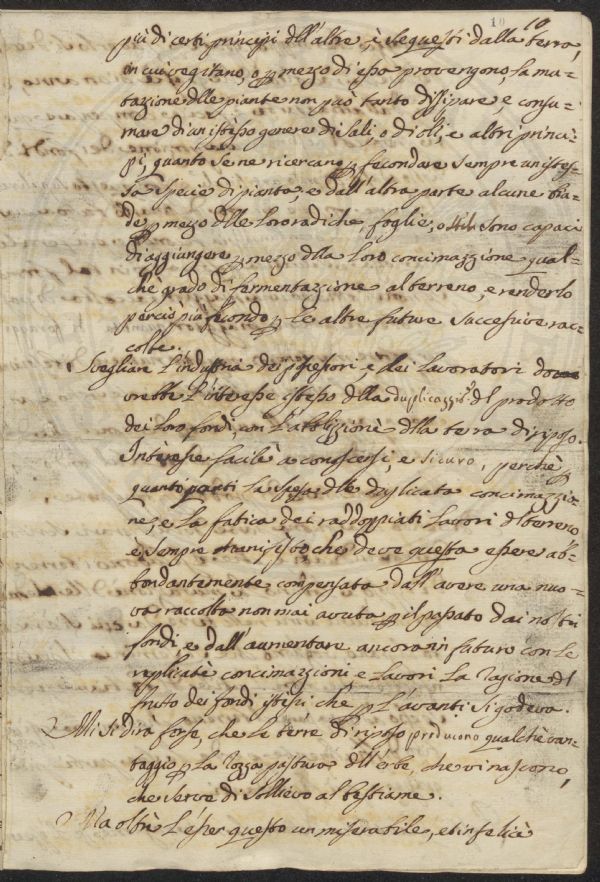 10 10
più di certi principj dell'altre, è che questi dalla terra,
in cui vegitano, o p mezzo di essa provengono, la mu-
tazione delle piante non può tanto dissipare e consu-
mare d'un istesso genere di sali, o di olj, e altri princi-
pj, quanto se ne ricercano p fecondare sempre un istes-
sa specie di pianta, e dall'altra parte alcune bia-
de p mezzo delle loro radiche, foglie, o steli sono capaci
di aggiungere p mezzo della loro concimazzione qual-
che grado di fermentazzione al terreno, e renderlo
perciò più fecondo p le altre future successive rac-
colte.
Svegliare l'industria dei possessori e dei lavoratori do
vrebbe l'interesse istesso della duplicazzie del prodotto
dei loro fondi, con l'abolizzione della terra di riposo.
Interesse facile a conoscersi, e sicuro, perchè p
quanto porti la spesa delle duplicata concimazzi-
ne, e la fatica dei raddoppiati lavori del terreno
è sempre manifesto che deve questa essere ab-
bondantemente compensata dall'avere una nuo-
va raccolta non mai avuta p il passato dai nostri
fondi, e dall'aumentare ancora in futuro con le
replicate concimazzioni, e lavori la ragione del
frutto dei fondi istessi che p l'avanti si godeva.
Mi si dirà forse, che le terre di riposo producono qualche van-
taggio p la rozza pastura dell'erbe, che vi nascono,
che serve di sollievo al bestiame.
Ma oltre l'esser questo un miserabile, et infelice